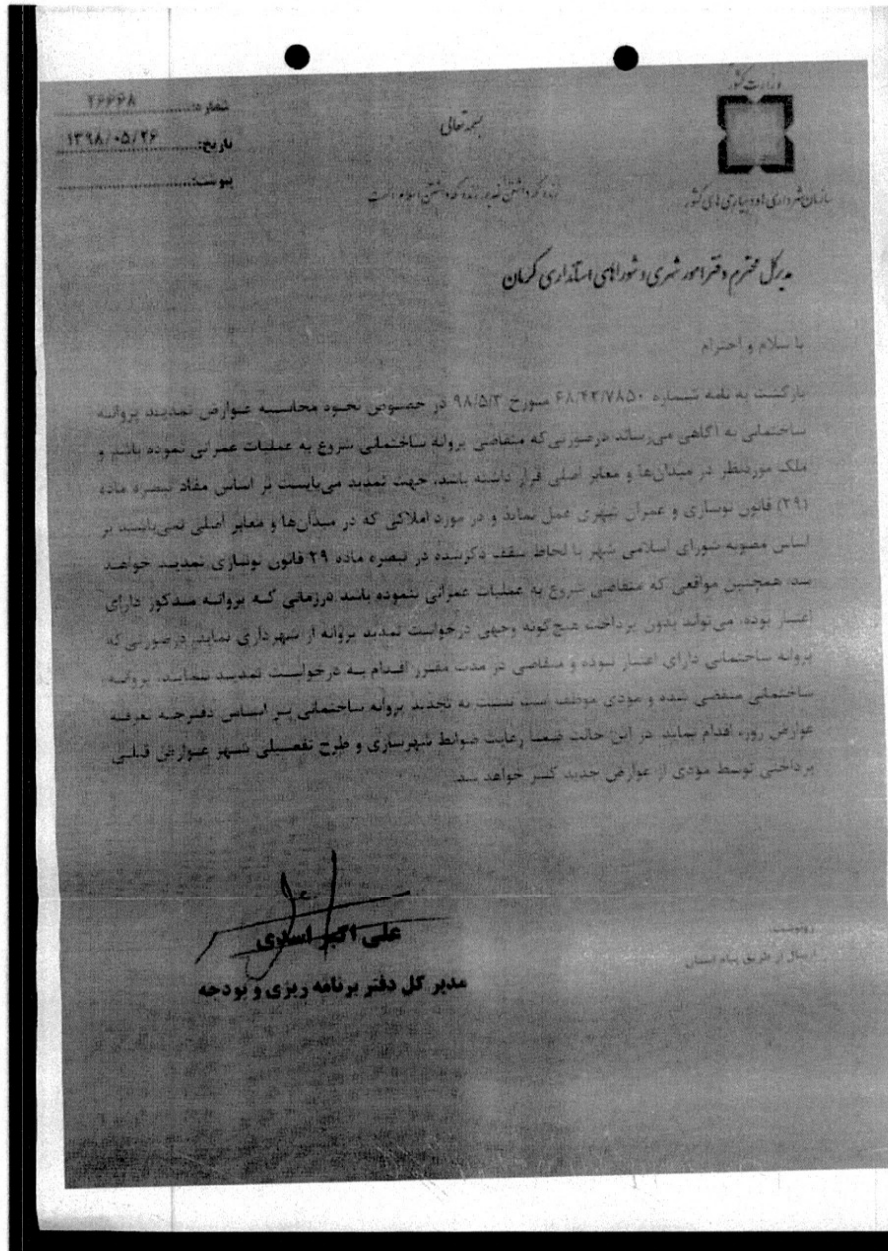 وزارت کشور
سازمان شهرداری ها و دهیاری های کشور
بسمه تعالی
شماره: ۲۶۶۶۸
تاریخ: ۱۳۹۸/۰۵/۲۶
پیوست:
مدیرکل محترم دفتر امور شهری و شوراهای استانداری کرمان
با سلام و احترام
بازگشت به نامه شماره ۶۸/۴۲/۷۸۵۰ مورخ ۹۸/۵/۳ در خصوص نحوه محاسبه عوارض تمدید پروانه
ساختمانی به آگاهی می‌رساند درصورتی‌که متقاضی پروانه ساختمانی شروع به عملیات عمرانی نموده باشد و
ملک موردنظر در میدان‌ها و معابر اصلی قرار داشته باشد، جهت تمدید می‌بایست بر اساس مفاد تبصره ماده
(۲۹) قانون نوسازی و عمران شهری عمل نماید و در مورد املاکی که در میدان‌ها و معابر اصلی نمی‌باشند بر
اساس مصوبه شورای اسلامی شهر با لحاظ سقف ذکرشده در تبصره ماده ۲۹ قانون نوسازی تمدید خواهد
شد، همچنین مواقعی که متقاضی شروع به عملیات عمرانی ننموده باشد درزمانی که پروانه مذکور دارای
اعتبار بوده، می‌تواند بدون پرداخت هیچ‌گونه وجهی درخواست تمدید پروانه از شهرداری نماید. درصورتی‌که
پروانه ساختمانی دارای اعتبار نبوده و متقاضی در مدت مقرر اقدام به درخواست تمدید ننماید، پروانه
ساختمانی منقضی شده و مودی موظف است نسبت به تجدید پروانه ساختمانی بر اساس دفترچه تعرفه
عوارض روز، اقدام نماید. در این حالت ضمنا رعایت ضوابط شهرسازی و طرح تفصیلی شهر عوارض قبلی
پرداختی توسط مودی از عوارض جدید کسر خواهد شد.
علی اکبر اسدی
مدیر کل دفتر برنامه ریزی و بودجه
رونوشت:
ارسال از طریق پیام استان